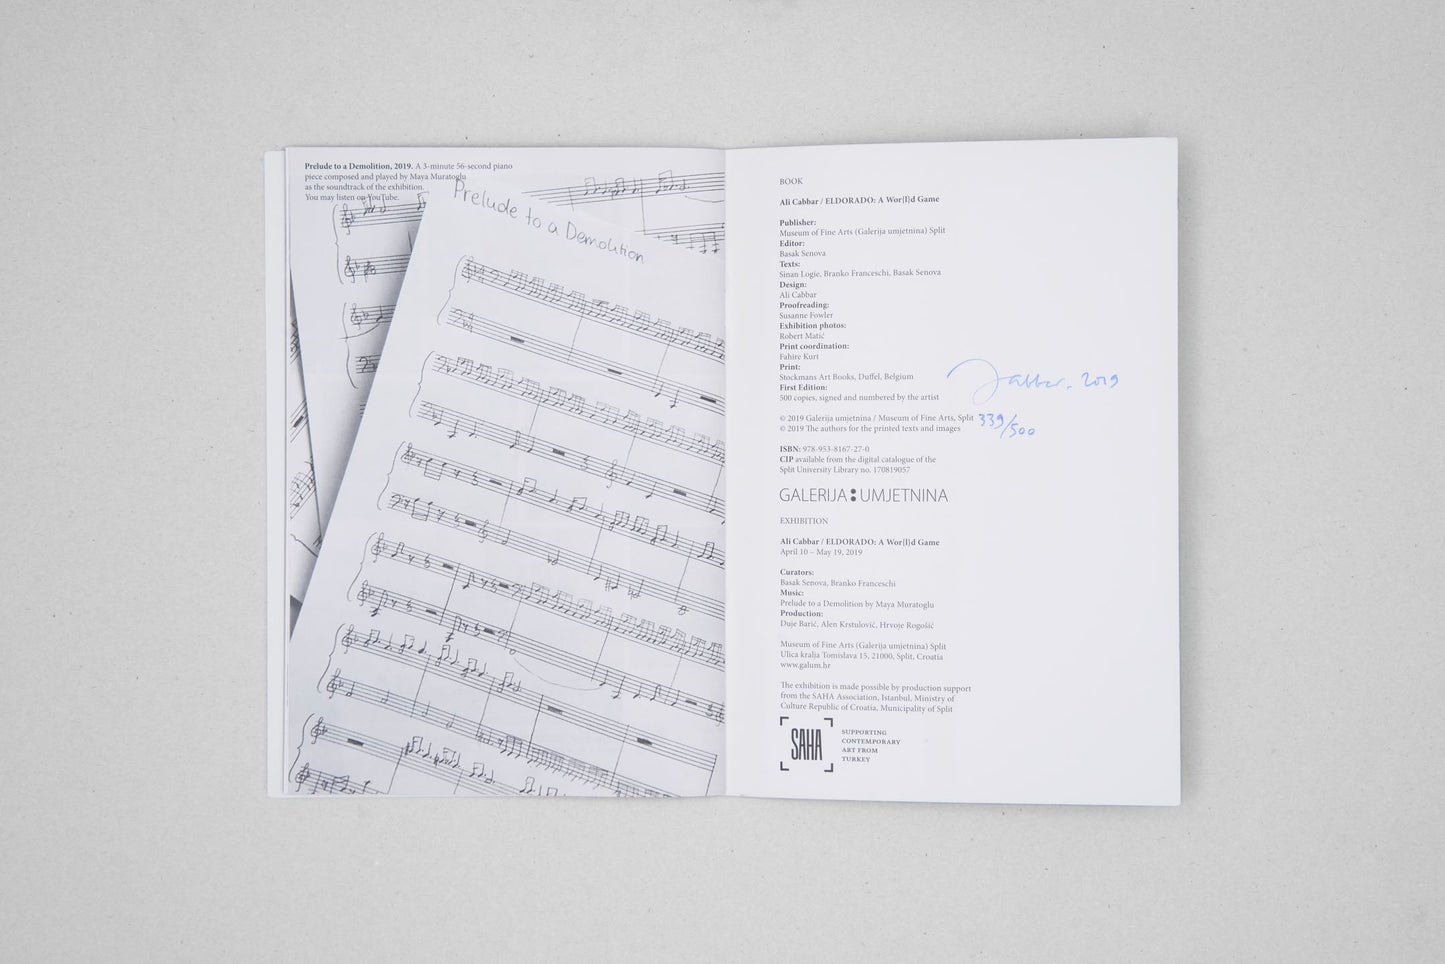 Prelude to a Demolition, 2019. A 3-minute 56-second piano
piece composed and played by Maya Muratoglu
as the soundtrack of the exhibition.
You may listen on YouTube.
Prelude to a Demolition
BOOK
Ali Cabbar / ELDORADO: A Wor(l)d Game
Publisher:
Museum of Fine Arts (Galerija umjetnina) Split
Editor:
Basak Senova
Texts:
Sinan Logie, Branko Franceschi, Basak Senova
Design:
Ali Cabbar
Proofreading:
Susanne Fowler
Exhibition photos:
Robert Matić
Print coordination:
Fahire Kurt
Print:
Stockmans Art Books, Duffel, Belgium
First Edition:
500 copies, signed and numbered by the artist
Cabbar. 2019
© 2019 Galerija umjetnina / Museum of Fine Arts, Split
339/500
© 2019 The authors for the printed texts and images
ISBN: 978-953-8167-27-0
CIP available from the digital catalogue of the
Split University Library no. 170819057
GALERIJA UMJETNINA
EXHIBITION
Ali Cabbar / ELDORADO: A Wor(l)d Game
April 10 – May 19, 2019
Curators:
Basak Senova, Branko Franceschi
Music:
Prelude to a Demolition by Maya Muratoglu
Production:
Duje Barić, Alen Krstulović, Hrvoje Rogošić
Museum of Fine Arts (Galerija umjetnina) Split
Ulica kralja Tomislava 15, 21000, Split, Croatia
www.galum.hr
The exhibition is made possible by production support
from the SAHA Association, Istanbul, Ministry of
Culture Republic of Croatia, Municipality of Split
SAHA
SUPPORTING
CONTEMPORARY
ART FROM
TURKEY